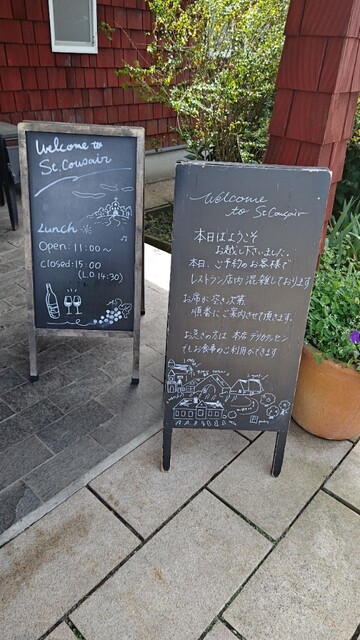 Welcome to
St.Cousair
Lunch
Open: 11:00～
closed: 15:00
(L.O 14:30)
Welcome
to St.Cousair
本日はようこそ
お越し下さいました。
本日、ご予約のお客様で
レストラン店内 混雑しております
お席が空き次第
順番にご案内させて頂きます。
お急ぎの方は 本店 デリカッセン
でもお食事のご利用ができます